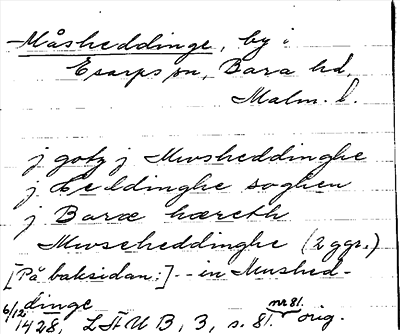 Måsheddinge, by i
Esarps sn, Bara hd,
Malm. l.
j gotz j Mwsheddinghe
j be ldinghe soghen
j Baræ hæreth
Mwscheddinghe (2 ggr.)
[På baksidan:] -- in Mwshed-
dinge
6/12 1428, LÄUB, 3, s. 81. nr 81. orig.